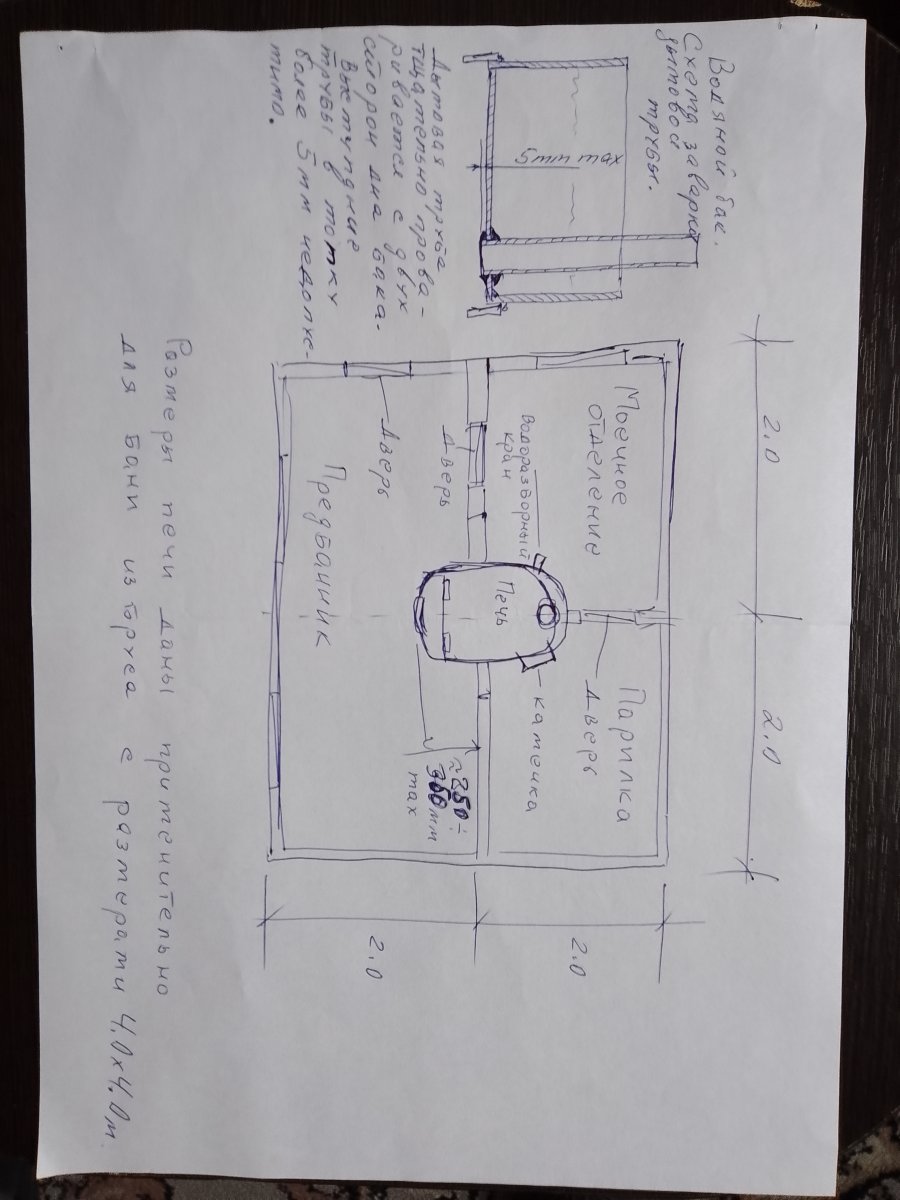 Водяной бак.
Схема заварки
дымовой
трубы.
5мм max
Дымовая труба
тщательно прова-
ривается с двух
сторон дна бака.
Выступание
трубы в топку
более 5мм недопус-
тимо.
2.0
2.0
Моечное
отделение
Водоразборный
кран
Дверь
Дверь
Предбанник
Печь
Парилка
Дверь
каменка
≈250÷
350мм
max
2.0
2.0
Размеры печи даны применительно
для бани из бруса с размерами 4.0х4.0м.